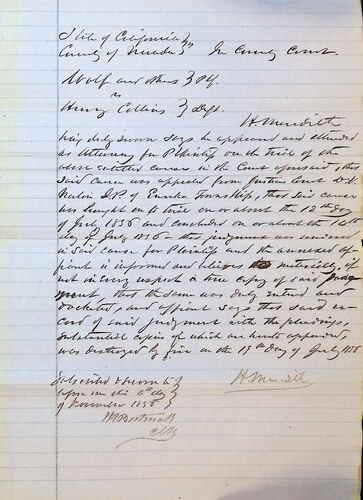 State of California }
County of Nevada } ss In County Court
Wolf and others } Plf.
vs
Henry Collins } Deft.
H Meredith
being duly sworn says he appeared and attended
as Attorney for Plaintiffs on the trial of the
above entitled cause in the Court aforesaid, that
said cause was appealed from Justices Court
J.P. of Eureka Township, that said cause
was brought on to trial on or about the 12th day
of July 1856 and concluded on or about the 14th
day of July 1856 – that judgment was rendered
in said cause for Plaintiffs and the annexed af-
fiant is informed and believes materially if
not in every respect a true copy of said judg-
ment, that the same was duly entered and
docketed, and affiant says that said re-
cord of said judgment with the pleadings,
substantial copies of which are hereto appended,
was destroyed by fire on the 19th Day of July 1856
Subscribed & sworn to }
before me this 6th day }
of November 1856 }
H Meredith